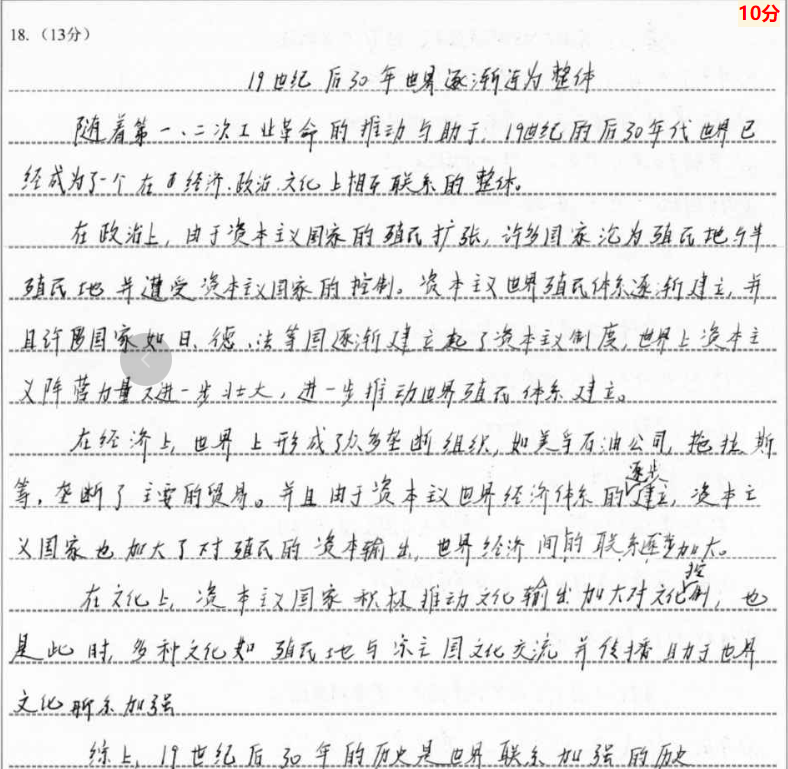 10分
18.（13分）
19世纪后30年世界逐渐连为整体
随着第一、二次工业革命的推动与助于，19世纪的后30年代世界已
经成为了一个在经济、政治、文化上相互联系的整体。
在政治上，由于资本主义国家的殖民扩张，许多国家沦为殖民地与半
殖民地并遭受资本主义国家的控制。资本主义世界殖民体系逐渐建立，并
且许多国家如日、德、法等国逐渐建立起了资本主义制度，世界上资本主
义阵营力量又进一步壮大，进一步推动世界殖民体系建立。
在经济上，世界上形成了众多垄断组织，如美孚石油公司，拖拉斯
等，垄断了主要的贸易。并且由于资本主义世界经济体系的逐步建立，资本主
义国家也加大了对殖民的资本输出，世界经济间的联系逐步加大。
在文化上，资本主义国家积极推动文化输出加大对文化控制，也
是此时，多种文化如殖民地与宗主国文化交流并传播助于世界
文化联系加强
综上，19世纪后30年的历史是世界联系加强的历史